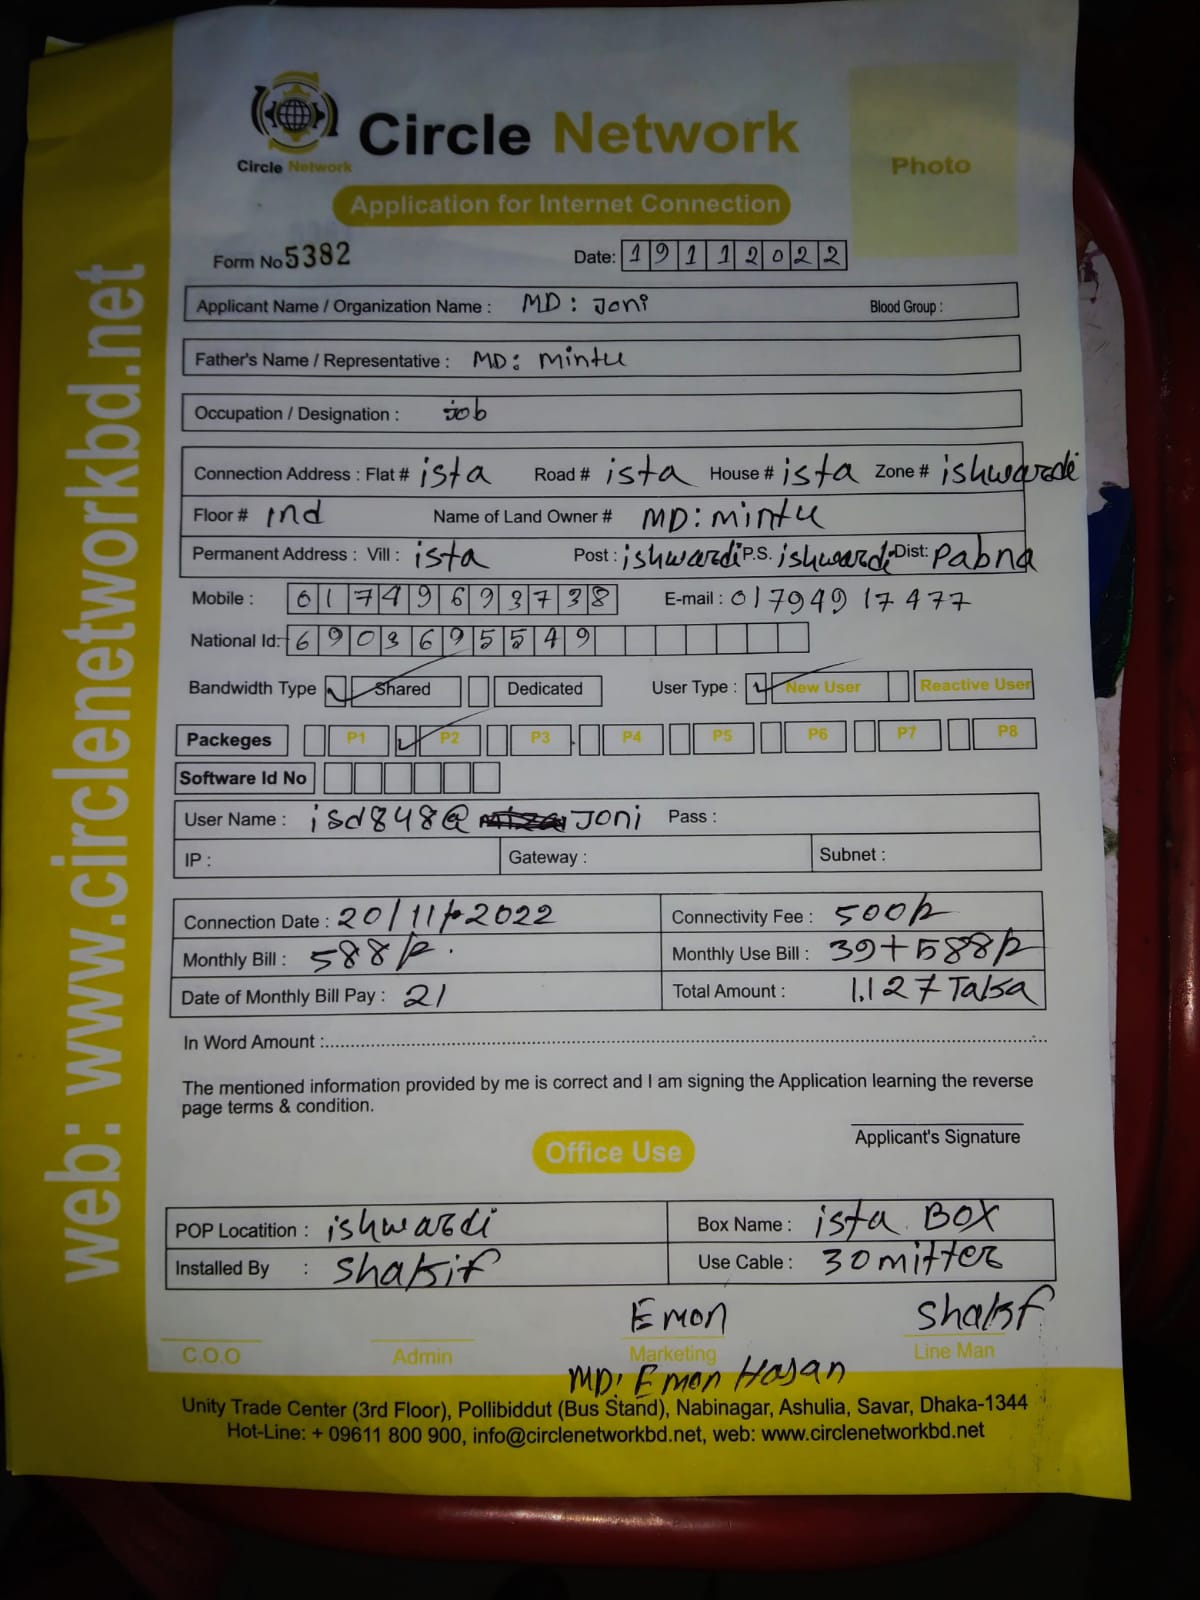 Circle Network
Circle Network
Photo
Application for Internet Connection
Form No 5382 Date: 19112022
Applicant Name / Organization Name : MD : Joni Blood Group :
Father's Name / Representative : MD: Mintu
Occupation / Designation : job
Connection Address : Flat # ista Road # ista House # ista Zone # ishwardi
Floor # 1nd Name of Land Owner # MD: mintu
Permanent Address : Vill : ista Post : ishwardi P.S. ishwardi Dist: Pabna
Mobile : 01749693738 E-mail : 01794917477
National Id: 6903695549
Bandwidth Type Shared Dedicated User Type : New User Reactive User
Packeges P1 P2 P3 P4 P5 P6 P7 P8
Software Id No
User Name : isd848@ Joni Pass :
IP : Gateway : Subnet :
Connection Date : 20/11/2022 Connectivity Fee : 500/-
Monthly Bill : 588/- Monthly Use Bill : 39+588/-
Date of Monthly Bill Pay : 21 Total Amount : 1,127 Taka
In Word Amount :
The mentioned information provided by me is correct and I am signing the Application learning the reverse
page terms & condition.
Applicant's Signature
Office Use
POP Locatition : ishwardi Box Name : ista BOX
Installed By : Shakif Use Cable : 30 mitter
Emon Shakf
C.O.O Admin Marketing Line Man
MD: Emon Hasan
Unity Trade Center (3rd Floor), Pollibiddut (Bus Stand), Nabinagar, Ashulia, Savar, Dhaka-1344
Hot-Line: + 09611 800 900, info@circlenetworkbd.net, web: www.circlenetworkbd.net
web: www.circlenetworkbd.net